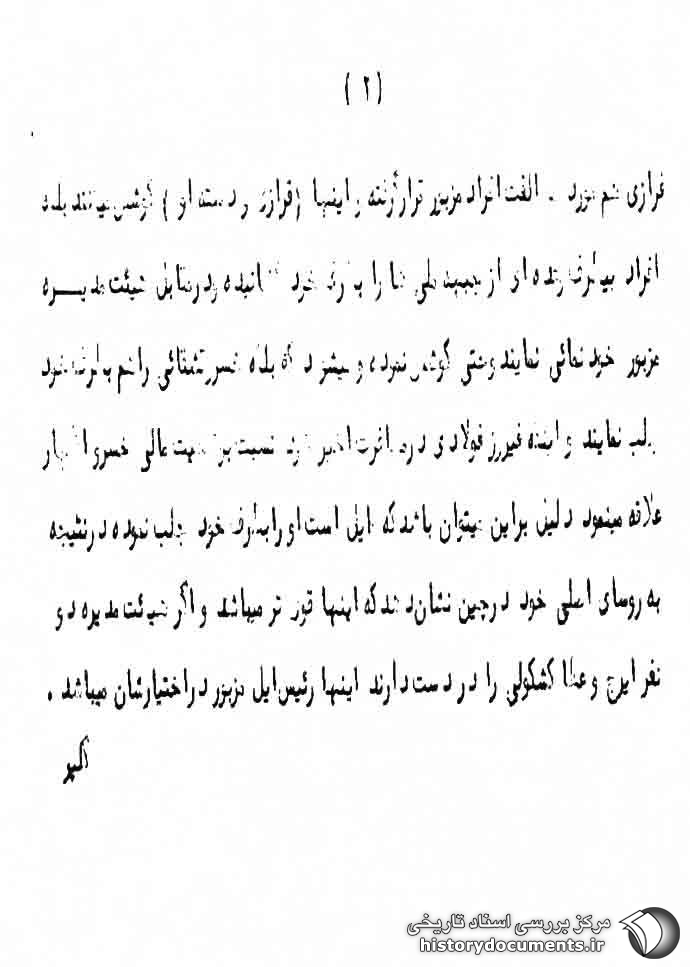 ( ۲ )
فرازی هم مورد . الفت افراد مزبور قرار گرفته و اینها ( فرازی و دسته او ) کوشش میکنند بلکه
افراد بیطرف زده ای از جبهه ملی ها را بطرف خود کشانیده ودرمقابل هیئت مدیـــره
مزبور خود نمائی نمایند وحتی کوشش نموده ومیشود که بلکه خسرو قشقائی راهم بطرف خود
جلب نمایند و اینکه فیروز فولادی در مسافرت اخیر خود نسبت به عالی خسروی اظهار
علاقه مینمود دلیل براین میتوان باشد که مایل است او را بطرف خود جلب نموده درنتیجه
به روسای اصلی خود درچین نشان دهند که اینها قوی تر میباشد و اگر هیئت مدیره دو
نفر ایرج و عطا کشکولی را در دست دارند اینها رئیس ایل مزبور دراختیارشان میباشد .
مرکز بررسی اسناد تاریخی
historydocuments.ir